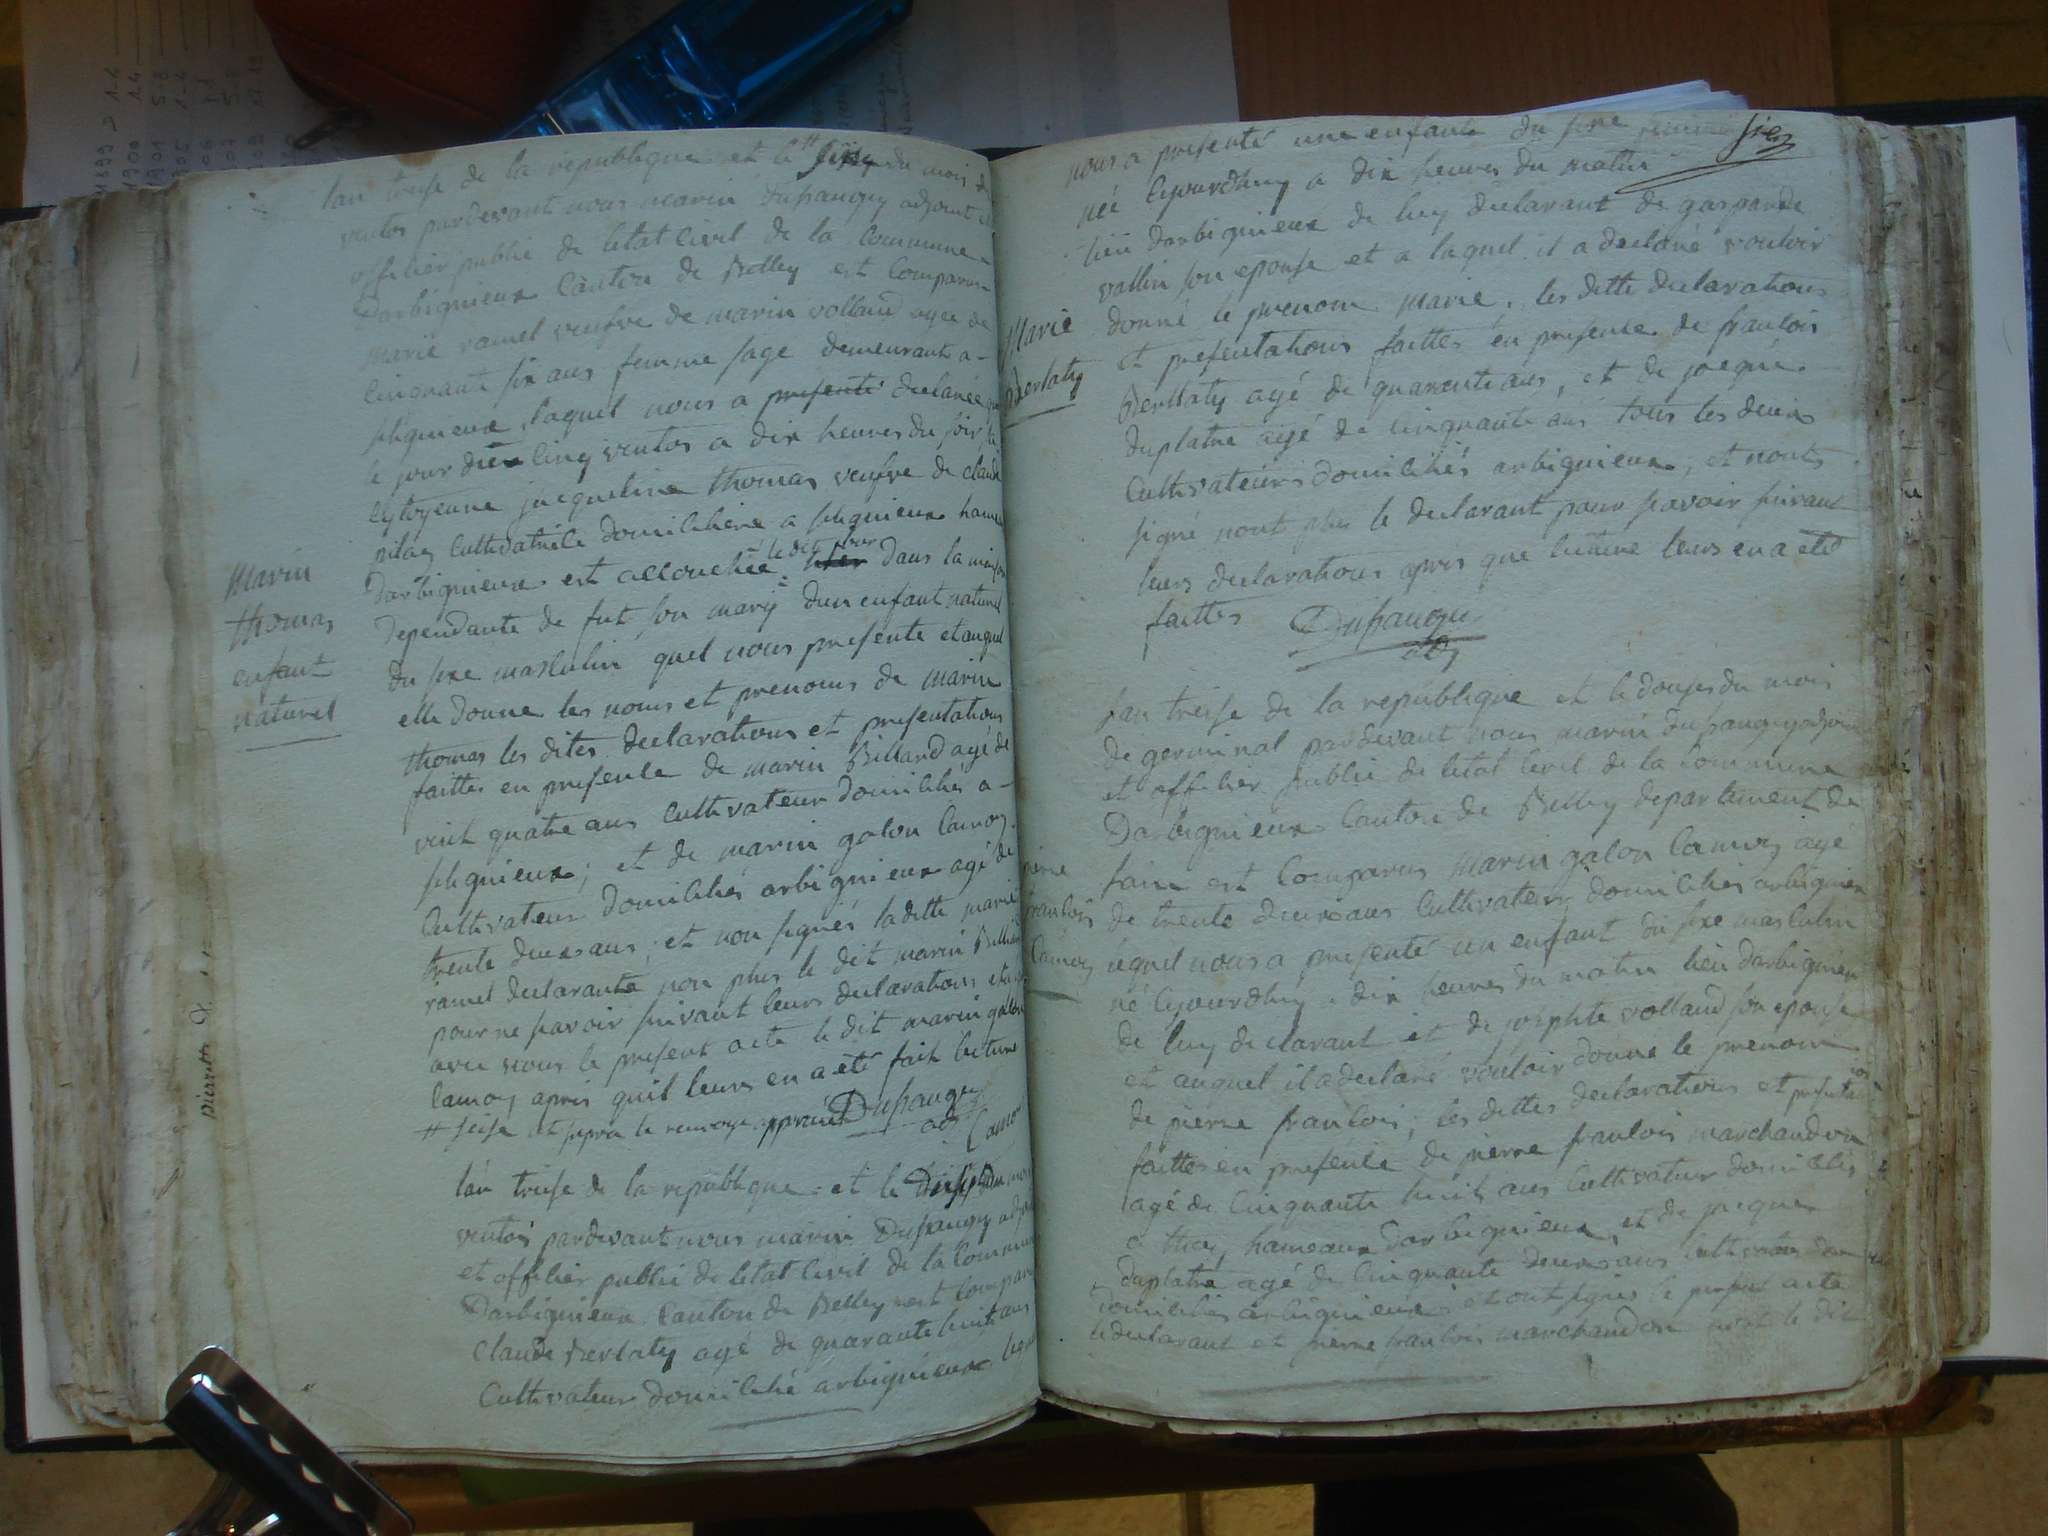 lan treise de la republique et le # seize du mois de
ventos pardevant nous marin Dufrangey adjoint et
officier public de letat civil de la commune
Darbignieux Canton de Belley est Comparue
marie ramel veufve de marin volland agee de
cinquante six ans femme sage demeurante a
plignieux laquel nous a presenté declarée que
le jour dier cinq ventos a dix heures du soir la
Cytoyenne jacqueline thomas veufve de claude
pilaz Cultivatrice domiciliere a plignieux hameau
Darbignieux est accouchée le dit jour hier Dans la maison
dependante de fut son mary dun enfant naturel
du sexe masculin quel nous presente et auquel
elle donne les noms et prenoms de marin
thomas les dites declarations et presentations
faittes en presence de marin Billiard agé de
vint quatre ans cultivateur domicilié a
plignieux ; et de marin galon Camoz
Cultivateur domiciliés arbignieux agé de
trente deux ans ; et non signés la ditte marie
ramel declarante non plus le dit marin Billiard
pour ne savoir suivant leurs declarations et a
avec nous le present acte le dit marin galon
Camoz apres quil leurs en a été fait lecture
# seise et supra le renvoye approuvé Dufrangey
adj Camoz
Marin
thomas
enfant
naturel
lan treise de la republique et le Dixsept du mois
ventos pardevant nous marin Dufrangey adjoint
et officier public de letat civil de la commune
Darbignieux Canton de Belley est comparu
Claude Berlatiy agé de quarante huit ans
Cultivateur domicilié arbignieux lequel
pierrette
nous a presenté une enfante du sexe feminin
née Cejourdhuy a dix heures du matin
lieu darbignieux de luy declarant de gasparde
vallin son epouse et a laquel il a declaré vouloir
donné le prenom marie, les ditte declarations
et presentations faittes en presence de francois
Berllatiy agé de quarante ans, et de jacque
duplatre agé de cinquante ans tous les deux
Cultivateurs domiciliés arbignieux et nont
signé nont plus le declarant pour savoir suivant
leurs declarations apres que lecture leurs en a été
faittes Dufrangey
adj
Marie
Berlatiy
Lan treise de la republique et le douse du mois
de germinal pardevant nous marin dufrangey adjoint
et officier public de letat civil de la commune
Darbignieux Canton de Belley departement de
lain est Comparus marin galon Camoz agé
de trente deux ans Cultivateur domiciliés arbignieux
lequel nous a presenté un enfant du sexe masculin
né Cejourdhuy a dix heures du matin lieu darbignieux
de luy declarant et de josephte volland son epouse
et auquel il a declaré vouloir donne le prenom
de pierre francois ; les dittes declarations et presentations
faittes en presence de pierre francois marchandon
agé de Cinquante huit ans Cultivateur domiciliés
a thoy hameaux darbignieux et de jacque
duplatre agé de Cinquante deux ans Cultivateur
domiciliés arbignieux et ont signés le present acte
le declarant et pierre francois marchandon le dit
pierre
francois
Camoz